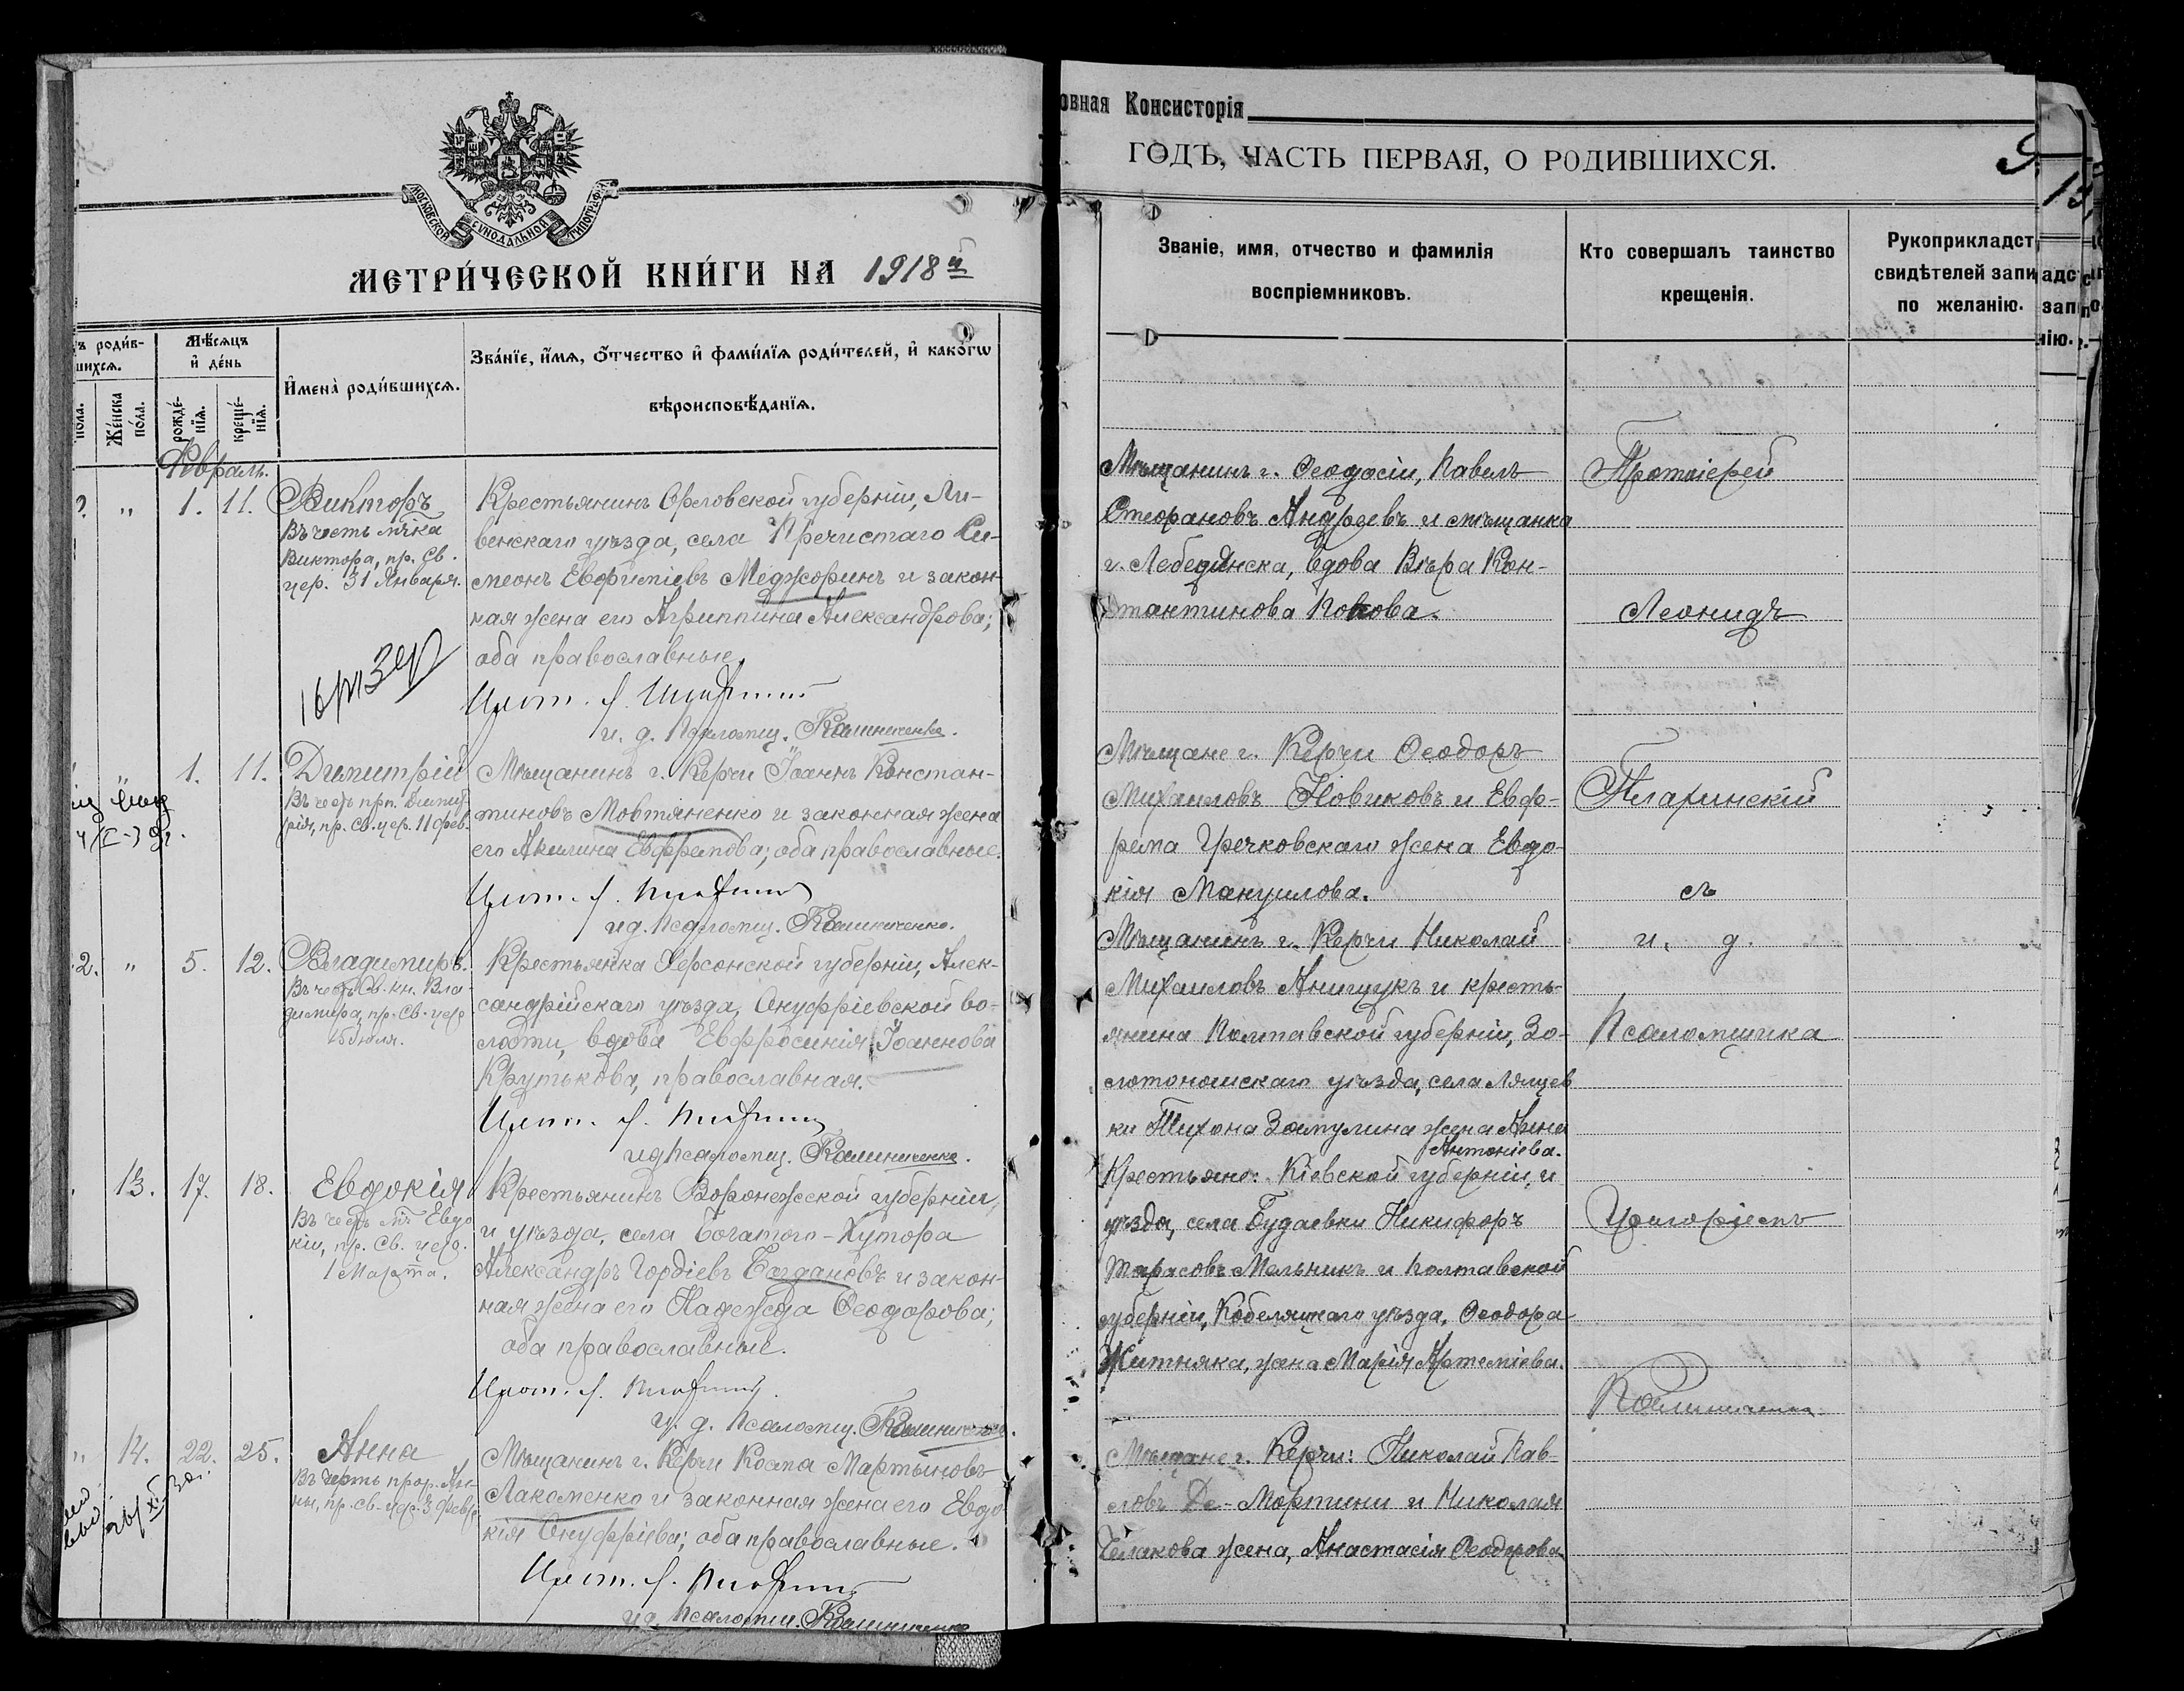 МОСКОВСКОЙ СѴНОДАЛЬНОЙ ТИПОГРАФ
МЕТРИ́ЧЕСКОЙ КНИ́ГИ НА 1918й
ъ роди́в-
шихся.
Мѣ́сяцъ
и де́нь
пола.
Же́нска
по́ла.
рожде́-
нія.
креще́-
нія.
Имена̀ роди́вшихся.
Зва́ніе, и́мя, о́тчество и фами́лія роди́телей, и како́гѡ
вѣроисповѣ́данія.
Февраль.
„ 1. 11. Викторъ
Въ честь мчка
Виктора, пр. Св.
цер. 31 Января.
Крестьянинъ Орловской губерніи, Ли-
венскаго уѣзда, села Пречистаго Си-
меонъ Евфиміевъ Меджоринъ и закон-
ная жена его Агриппина Александрова;
оба православные.
Прот. Л.
и. д. Псаломщ. Калиниченко.
„ 1. 11. Димитрій
Въ честь прп. Димит
рія, пр. Св. цер. 11 фев.
Мѣщанинъ г. Керчи Іоаннъ Констан-
тиновъ Мовтяненко и законная жена
его Акилина Евфремова; оба православные.
Прот. Л.
ид. Псаломщ. Калиниченко.
2. „ 5. 12. Владимиръ.
Въ честь Св. кн. Вла-
димира, пр. Св. цер
15 Іюля.
Крестьянка Херсонской губерніи, Алек-
сандрійскаго уѣзда, Онуфріевской во-
лости, вдова Евфросинія Іоаннова
Крутькова, православная.
Прот. Л.
ид Псаломщ. Калиниченко.
13. 17. 18. Евдокія
Въ честь мц Евдо
кіи, пр. Св. цер.
1 Марта.
Крестьянинъ Воронежской губерніи,
и уѣзда, села Богатого-Хутора
Александръ Гордіевъ Богдановъ и закон-
ная жена его Надежда Ѳеодорова;
оба православные.
Прот. Л.
и. д. Псаломщ. Калиниченко.
„ 14. 22. 25. Анна
Въ честь прор. Ан-
ны, пр. св. цер. 3 февр.
Мѣщанинъ г. Керчи Косма Мартыновъ
Лакоменко и законная жена его Евдо
кія Онуфріева; оба православные.
Прот. Л.
ид. Псаломщ. Калиниченко
овная Консисторія
ГОДЪ, ЧАСТЬ ПЕРВАЯ, О РОДИВШИХСЯ.
9.
13
Званіе, имя, отчество и фамилія
воспріемниковъ.
Кто совершалъ таинство
крещенія.
Рукоприкладст
свидѣтелей запи
по желанію.
Мѣщанинъ г. Ѳеодосіи, Павелъ
Стефановъ Андреевъ и мѣщанка
г. Лебедянска, вдова Вѣра Кон-
стантинова Попова.
Мѣщане г. Керчи Ѳеодоръ
Михаиловъ Новиковъ и Евф-
рема Гречковскаго жена Евдо-
кія Мануилова.
Мѣщанинъ г. Керчи Николай
Михаиловъ Анищукъ и кресть-
янина Полтавской губерніи, Зо-
лотоношскаго уѣзда, села Лящев
ки Тихона Замулина жена Анна
Антоніева.
Крестьяне: Кіевской губерніи, и
уѣзда, села Будаевки Никифоръ
Тарасовъ Мельникъ и Полтавской
губерніи, Кобеляцкаго уѣзда, Ѳеодора
Житняка, жена Марія Артеміева.
Мѣщане г. Керчи: Николай Пав-
ловъ Де-Мортини и Николая
Челакова жена, Анастасія Ѳеодорова
Протоіерей
Леонидъ
съ
и. д.
Псаломщика
Григоріемъ
Калиниченко